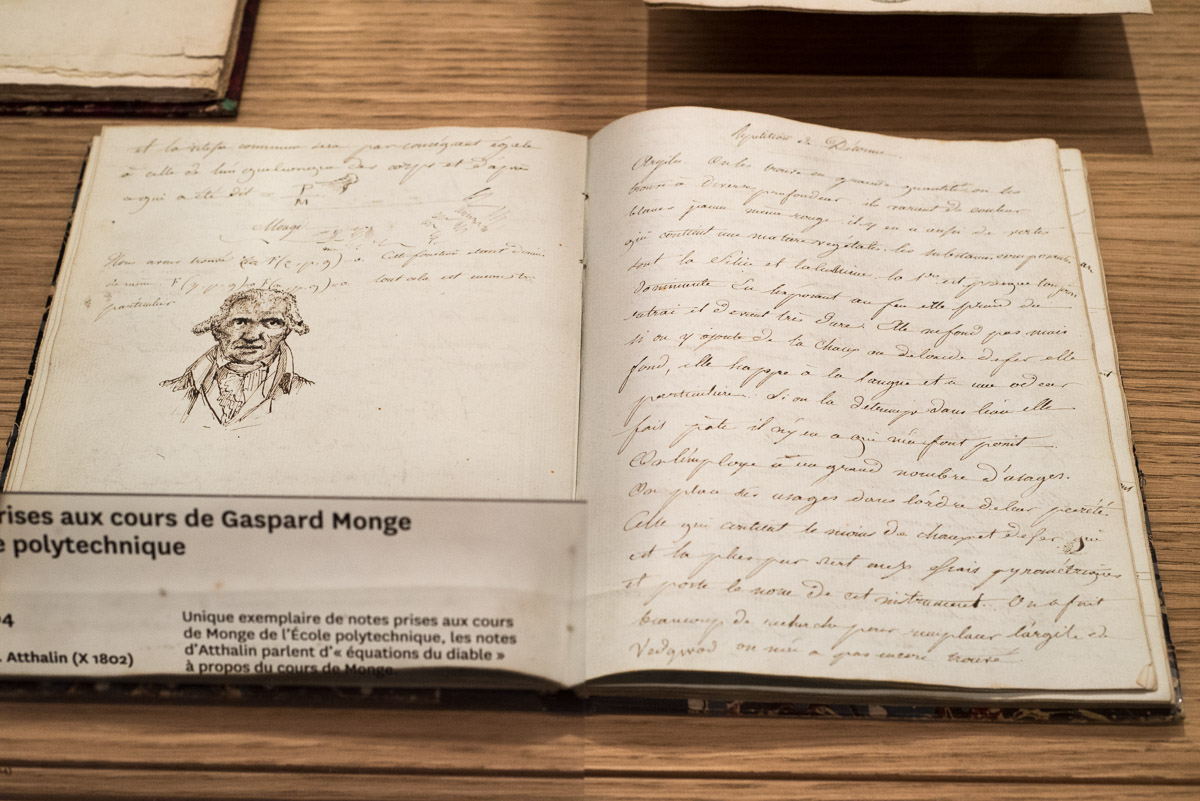 et la vitesse commune sera par conséquent égale
à celle de l'un quelconque des corps et d'après
ce qui a été dit P
M
Monge
Nous avons trouvé Cette fonction étant d'une
tout cela est
particulier
Répétition de
Argiles On les trouve en grande quantité on les
trouve à diverses profondeur ils varient de couleur
blancs jaune même rouge il y en a aussi de vertes
qui contient une matière végétale. les substances
sont la Silice et l'alumine la 1ere est presque toujours
dominante En l'exposant au feu elle prend du
retrait et devient très dure. Elle ne fond pas mais
si on y ajoute de la chaux ou de l'oxide de fer elle
fond, elle happe à la langue et a une odeur
particulière. Si on la détrempe dans l'eau elle
fait pâte il n'y en a qui n'en font point
On l'employe à un grand nombre d'usages.
On place ses usages dans l'ordre de leur pureté.
Celle qui contient le moins de chaux et de fer qui
est la plus pure sert aux pyrométriques
et porte le nom de cet instrument. On a fait
beaucoup de recherche pour remplacer l'argile de
Vedgwod on n'en a pas encore trouvé
rises aux cours de Gaspard Monge
e polytechnique
04
. Atthalin (X 1802)
Unique exemplaire de notes prises aux cours
de Monge de l'École polytechnique, les notes
d'Atthalin parlent d'« équations du diable »
à propos du cours de Monge.